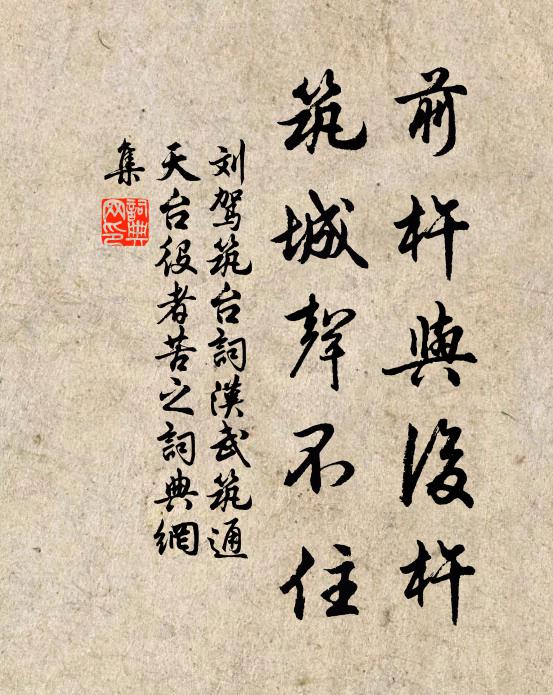 前杵與後杵
筑城聲不住
刘驾筑台詞漢武筑通
天台役者苦之詞典網
集
詞典
网印